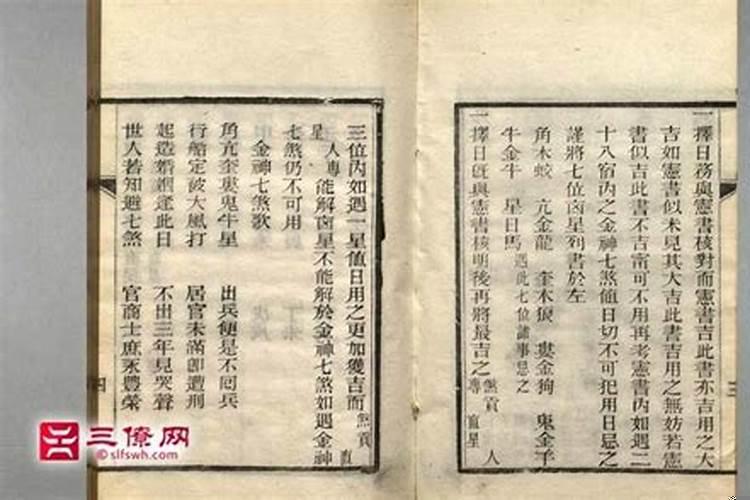 一擇日務與憲書核對而憲書吉此書亦吉用之大
吉如憲書似未見其大吉此書吉用之無妨若憲
書似吉此書不吉甯可不用再考憲書內如遇二
十八宿內之金神七煞值日切不可犯用日忌之
謹將七位凶星列書於左
角木蛟 亢金龍 奎木狼 婁金狗 鬼金羊
牛金牛 星日馬 遇此七位諸事忌之
一擇日旣與憲書核明後再將最吉之煞貢 人專 直星
三
三位內如遇一星值日用之更加獲吉而煞貢 直
星 人專 能解凶星不能解於金神七煞如遇金神
七煞仍不可用
金神七煞歌
角亢奎婁鬼牛星 出兵便是不回兵
行船定被大風打 居官未滿卽遭刑
起造婚姻逢此日 不出三年見哭聲
世人若知避七煞 官商士庶永豐榮
四
三僚网
©slfswh.com